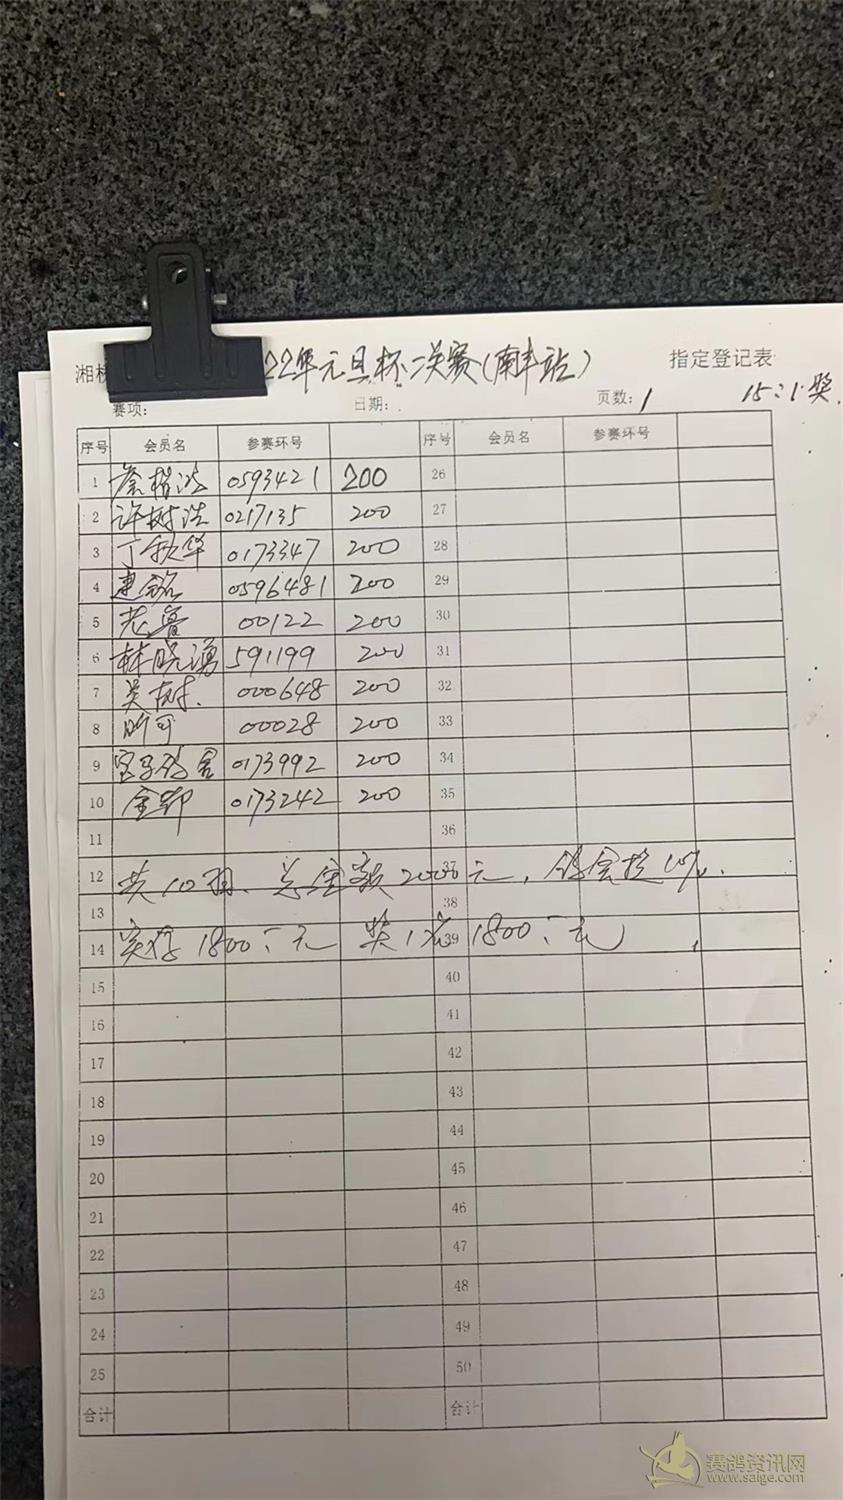 湘 22年元旦杯二关赛(南丰站) 指定登记表
赛项: 日期: 页数:1 15:1奖
序号 会员名 参赛环号 序号 会员名 参赛环号
1 詹楷浩 0593421 200 26
2 许树浩 0217135 200 27
3 丁秋华 0173347 200 28
4 惠铭 0596481 200 29
5 老鲁 00122 200 30
6 林晓湧 591199 200 31
7 吴树. 000648 200 32
8 昕可 00028 200 33
9 0173992 200 34
10 金部 0173242 200 35
11 36
12 共10羽、总金额2000元, 鸽会提10%. 37
13 38
14 实存1800:元 奖1名1800:元 39
15 40
16 41
17 42
18 43
19 44
20 45
21 46
22 47
23 48
24 49
25 50
合计 合计
赛鸽资讯网
www.saige.com